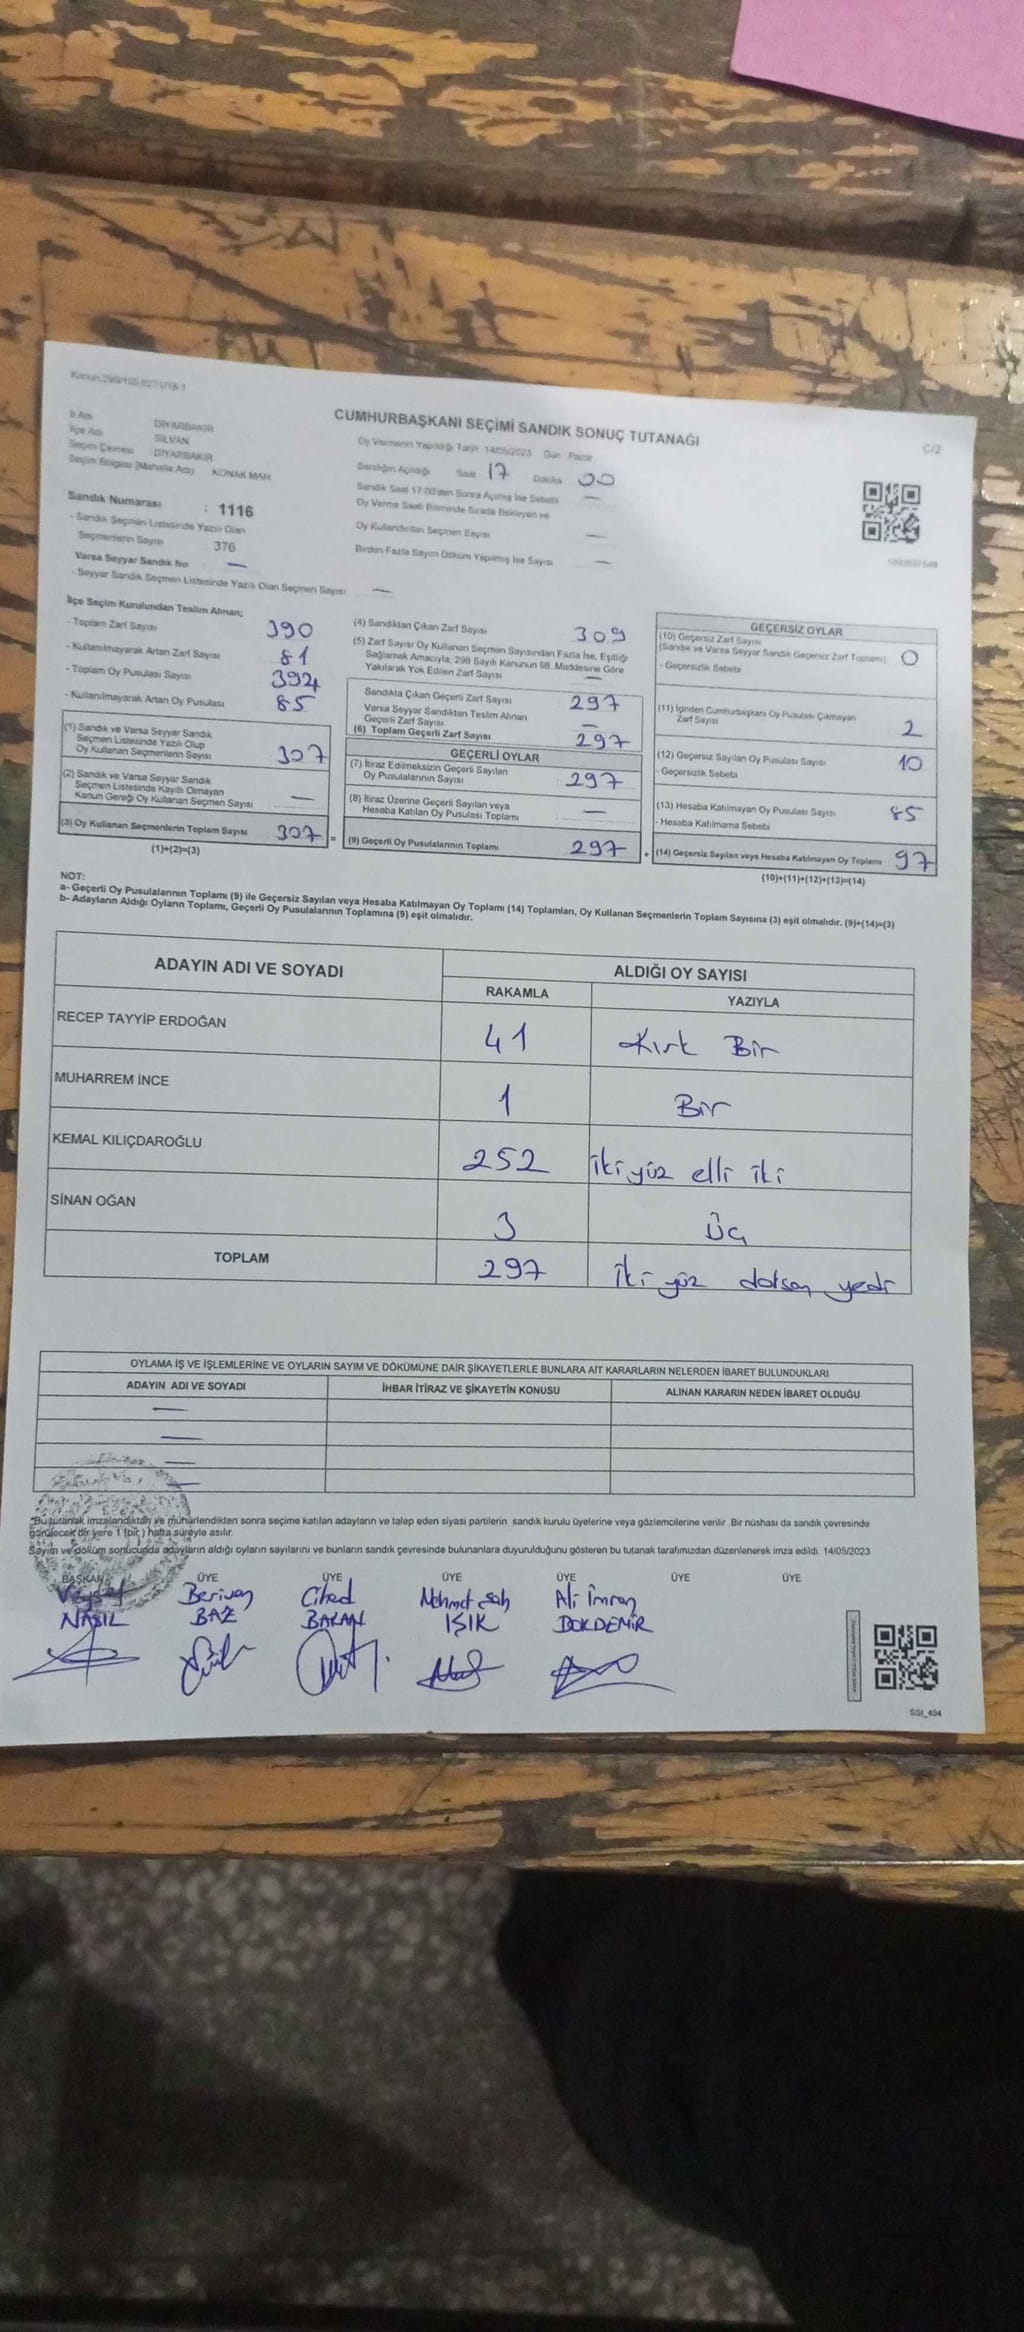 CUMHURBAŞKANI SEÇİMİ SANDIK SONUÇ TUTANAĞI
C/2
İl Adı DİYARBAKIR
İlçe Adı SİLVAN
Seçim Çevresi DİYARBAKIR
Seçim Bölgesi (Mahalle Adı) KONAK MAH
Oy Vermenin Yapıldığı Tarih 14/05/2023 Gün Pazar
Sandığın Açıldığı Saat 17 Dakika 00
Sandık Saat 17:00'den Sonra Açılmış İse Sebebi —
Oy Verme Saati Bitiminde Sırada Bekleyen ve
Oy Kullandırılan Seçmen Sayısı —
Birden Fazla Sayım Döküm Yapılmış İse Sayısı —
Sandık Numarası : 1116
- Sandık Seçmen Listesinde Yazılı Olan
Seçmenlerin Sayısı 376
Varsa Seyyar Sandık No —
- Seyyar Sandık Seçmen Listesinde Yazılı Olan Seçmen Sayısı —
İlçe Seçim Kurulundan Teslim Alınan;
- Toplam Zarf Sayısı 390
- Kullanılmayarak Artan Zarf Sayısı 81
- Toplam Oy Pusulası Sayısı 392
- Kullanılmayarak Artan Oy Pusulası 85
(1) Sandık ve Varsa Seyyar Sandık
Seçmen Listesinde Yazılı Olup
Oy Kullanan Seçmenlerin Sayısı 307
(2) Sandık ve Varsa Seyyar Sandık
Seçmen Listesinde Kayıtlı Olmayan
Kanun Gereği Oy Kullanan Seçmen Sayısı —
(3) Oy Kullanan Seçmenlerin Toplam Sayısı 307 =
(1)+(2)=(3)
(4) Sandıktan Çıkan Zarf Sayısı 309
(5) Zarf Sayısı Oy Kullanan Seçmen Sayısından Fazla İse, Eşitliği
Sağlamak Amacıyla; 298 Sayılı Kanunun 98. Maddesine Göre
Yakılarak Yok Edilen Zarf Sayısı —
Sandıkta Çıkan Geçerli Zarf Sayısı 297
Varsa Seyyar Sandıktan Teslim Alınan
Geçerli Zarf Sayısı —
(6) Toplam Geçerli Zarf Sayısı 297
GEÇERLİ OYLAR
(7) İtiraz Edilmeksizin Geçerli Sayılan
Oy Pusulalarının Sayısı 297
(8) İtiraz Üzerine Geçerli Sayılan veya
Hesaba Katılan Oy Pusulası Toplamı —
(9) Geçerli Oy Pusulalarının Toplamı 297 +
GEÇERSİZ OYLAR
(10) Geçersiz Zarf Sayısı
(Sandık ve Varsa Seyyar Sandık Geçersiz Zarf Toplamı) 0
- Geçersizlik Sebebi
(11) İçinden Cumhurbaşkanı Oy Pusulası Çıkmayan
Zarf Sayısı 2
(12) Geçersiz Sayılan Oy Pusulası Sayısı 10
- Geçersizlik Sebebi
(13) Hesaba Katılmayan Oy Pusulası Sayısı 85
- Hesaba Katılmama Sebebi
(14) Geçersiz Sayılan veya Hesaba Katılmayan Oy Toplamı 97
(10)+(11)+(12)+(13)=(14)
NOT:
a- Geçerli Oy Pusulalarının Toplamı (9) ile Geçersiz Sayılan veya Hesaba Katılmayan Oy Toplamı (14) Toplamları, Oy Kullanan Seçmenlerin Toplam Sayısına (3) eşit olmalıdır. (9)+(14)=(3)
b- Adayların Aldığı Oyların Toplamı, Geçerli Oy Pusulalarının Toplamına (9) eşit olmalıdır.
ADAYIN ADI VE SOYADI ALDIĞI OY SAYISI
RAKAMLA YAZIYLA
RECEP TAYYİP ERDOĞAN 41 Kırk Bir
MUHARREM İNCE 1 Bir
KEMAL KILIÇDAROĞLU 252 iki yüz elli iki
SİNAN OĞAN 3 Üç
TOPLAM 297 iki yüz doksan yedi
OYLAMA İŞ VE İŞLEMLERİNE VE OYLARIN SAYIM VE DÖKÜMÜNE DAİR ŞİKAYETLERLE BUNLARA AİT KARARLARIN NELERDEN İBARET BULUNDUKLARI
ADAYIN ADI VE SOYADI İHBAR İTİRAZ VE ŞİKAYETİN KONUSU ALINAN KARARIN NEDEN İBARET OLDUĞU
—
—
—
—
*Bu tutanak imzalandıktan ve mühürlendikten sonra seçime katılan adayların ve talep eden siyasi partilerin sandık kurulu üyelerine veya gözlemcilerine verilir. Bir nüshası da sandık çevresinde
görülecek bir yere 1 (bir) hafta süreyle asılır.
Sayım ve döküm sonucunda adayların aldığı oyların sayılarını ve bunların sandık çevresinde bulunanlara duyurulduğunu gösteren bu tutanak tarafımızdan düzenlenerek imza edildi. 14/05/2023
BAŞKAN ÜYE ÜYE ÜYE ÜYE ÜYE ÜYE
Veysel Berivan Cihed Mehmet Şah Ali İmran
NASIL BAZ BAKAN IŞIK DOKDEMİR
SSI_404